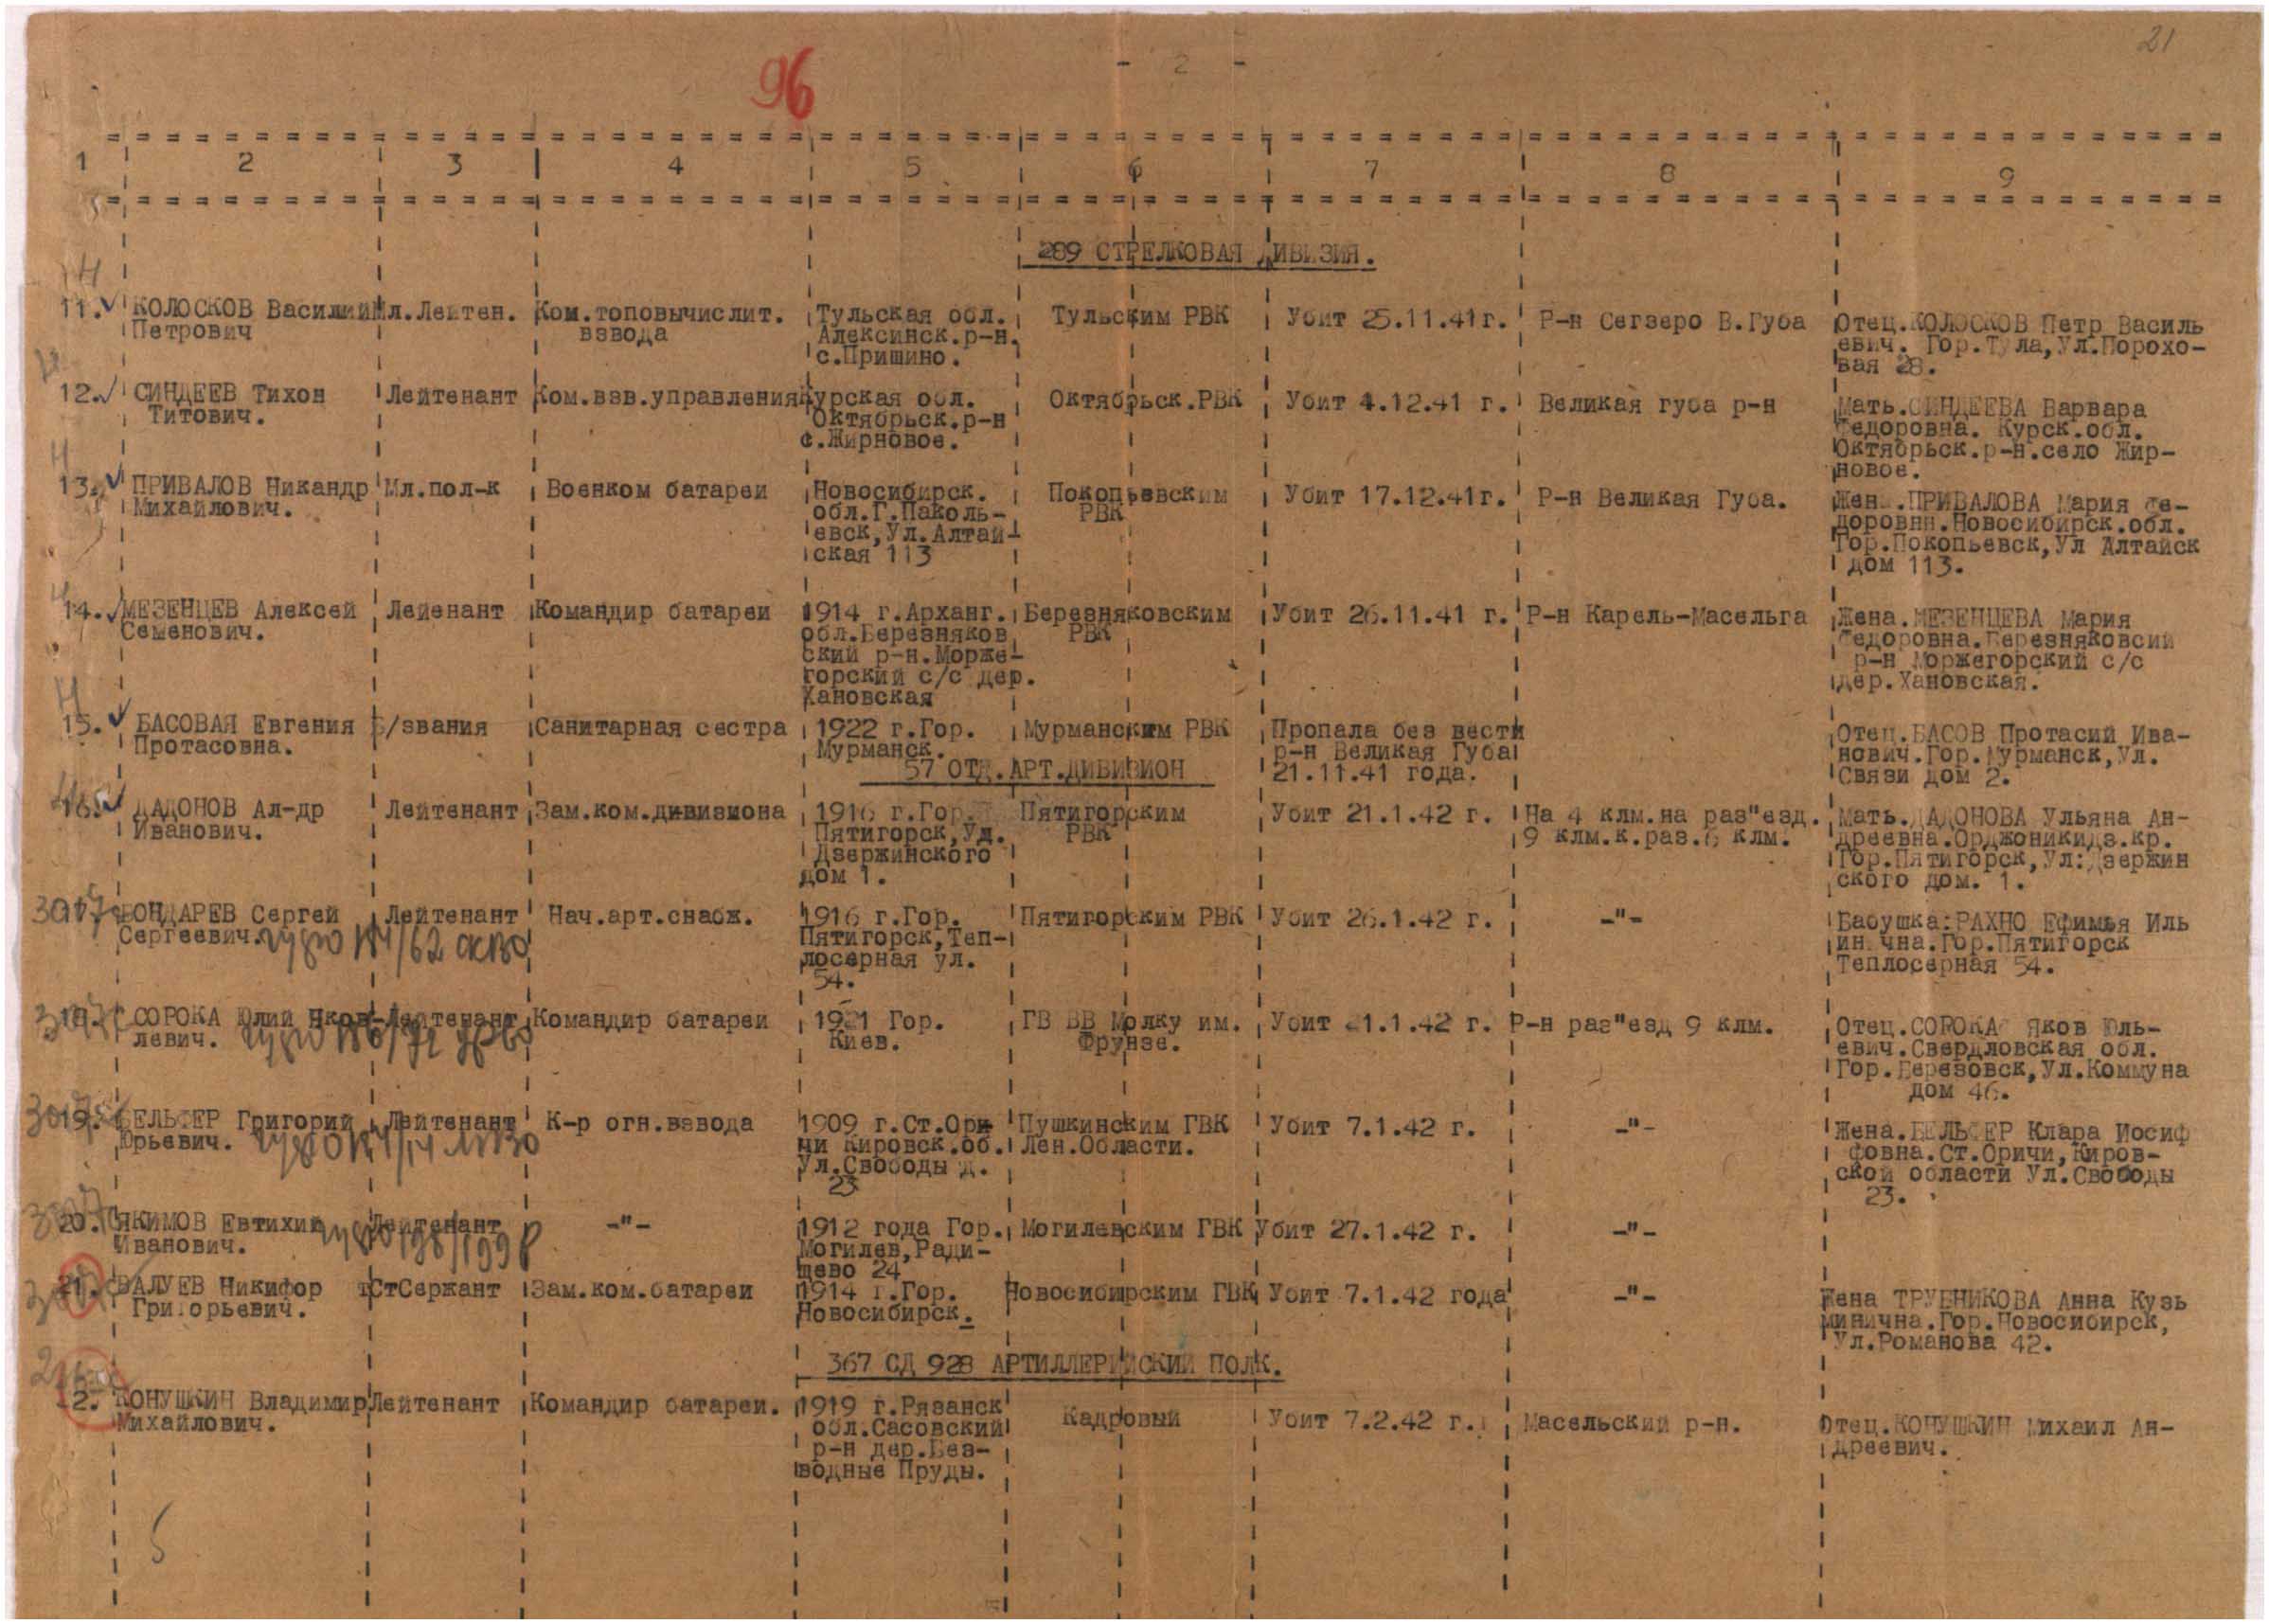 21
96
- 2 -
1 2 3 4 5 6 7 8 9
289 СТРЕЛКОВАЯ ДИВИЗИЯ.
11. КОЛОСКОВ Василий Мл.Лейтен. Ком.топовычислит. Тульская обл. Тульским РВК Убит 25.11.41г. Р-н Сегзеро В.Губа Отец.КОЛОСКОВ Петр Василь
Петрович взвода Алексинск.р-н. евич. Гор.Тула,Ул.Порохо-
с.Пришино. вая 28.
12. СИНДЕЕВ Тихон Лейтенант Ком.взв.управления Курская обл. Октябрьск.РВК Убит 4.12.41 г. Великая губа р-н Мать.СИНДЕЕВА Варвара
Титович. Октябрьск.р-н Федоровна. Курск.обл.
с.Жирновое. Октябрьск.р-н.село Жир-
новое.
13. ПРИВАЛОВ Никандр Мл.пол-к Военком батареи Новосибирск. Покопьевским Убит 17.12.41г. Р-н Великая Губа. Жен.ПРИВАЛОВА Мария Фе-
Михайлович. обл.Г.Паколь- РВК доровнн.Новосибирск.обл.
евск,Ул.Алтай- Гор.Покопьевск,Ул Алтайск
ская 113 дом 113.
14. МЕЗЕНЦЕВ Алексей Лейенант Командир батареи 1914 г.Арханг. Березняковским Убит 26.11.41 г. Р-н Карель-Масельга Жена.МЕЗЕНЦЕВА Мария
Семенович. обл.Березняков РВК Федоровна.Березняковсий
ский р-н.Морже- р-н Моржегорский с/с
горский с/с дер. дер.Хановская.
Хановская
15. БАСОВАЯ Евгения Б/звания Санитарная сестра 1922 г.Гор. Мурманским РВК Пропала без вести Отец.БАСОВ Протасий Ива-
Протасовна. Мурманск. р-н Великая Губа нович.Гор.Мурманск,Ул.
57 ОТД.АРТ.ДИВИЗИОН 21.11.41 года. Связи дом 2.
16. ДАДОНОВ Ал-др Лейтенант Зам.ком.дивизиона 1916 г.Гор. Пятигорским Убит 21.1.42 г. На 4 клм.на раз"езд. Мать.ДАДОНОВА Ульяна Ан-
Иванович. Пятигорск,Ул. РВК 9 клм.к.раз.6 клм. дреевна.Орджоникидз.кр.
Дзержинского Гор.Пятигорск,Ул:Дзержин
дом 1. ского дом. 1.
17. БОНДАРЕВ Сергей Лейтенант Нач.арт.снабж. 1916 г.Гор. Пятигорским РВК Убит 26.1.42 г. -"- Бабушка:РАХНО Ефимья Иль
Сергеевич. Пятигорск,Теп- ин.чна.Гор.Пятигорск
лосерная ул. Теплосерная 54.
54.
18. СОРОКА Юлий Яков- Лейтенант Командир батареи 1921 Гор. ГВ ВВ Молку им. Убит 21.1.42 г. Р-н раз"езд 9 клм. Отец.СОРОКА Яков Юль-
левич. Киев. Фрунзе. евич.Свердловская обл.
Гор.Березовск,Ул.Коммуна
дом 46.
19. БЕЛЬФЕР Григорий Лейтенант К-р огн.взвода 1909 г.Ст.Ори Пушкинским ГВК Убит 7.1.42 г. -"- Жена.БЕЛЬФЕР Клара Иосиф
Юрьевич. чи Кировск.об. Лен.Области. фовна.Ст.Оричи,Киров-
Ул.Свободы д. ской области Ул.Свободы
23 23.
20. ЯКИМОВ Евтихий Лейтенант -"- 1912 года Гор. Могилевским ГВК Убит 27.1.42 г. -"-
Иванович. Могилев,Ради-
щево 24
21. ВАЛУЕВ Никифор СтСержант Зам.ком.батареи 1914 г.Гор. Новосибирским ГВК Убит 7.1.42 года -"- Жена ТРУБНИКОВА Анна Кузь
Григорьевич. Новосибирск. минична.Гор.Новосибирск,
Ул.Романова 42.
367 СД 928 АРТИЛЛЕРИЙСКИЙ ПОЛК.
2. КОНУШКИН Владимир Лейтенант Командир батареи. 1919 г.Рязанск Кадровый Убит 7.2.42 г. Масельский р-н. Отец.КОНУШКИН Михаил Ан-
Михайлович. обл.Сасовский дреевич.
р-н дер.Без-
водные Пруды.